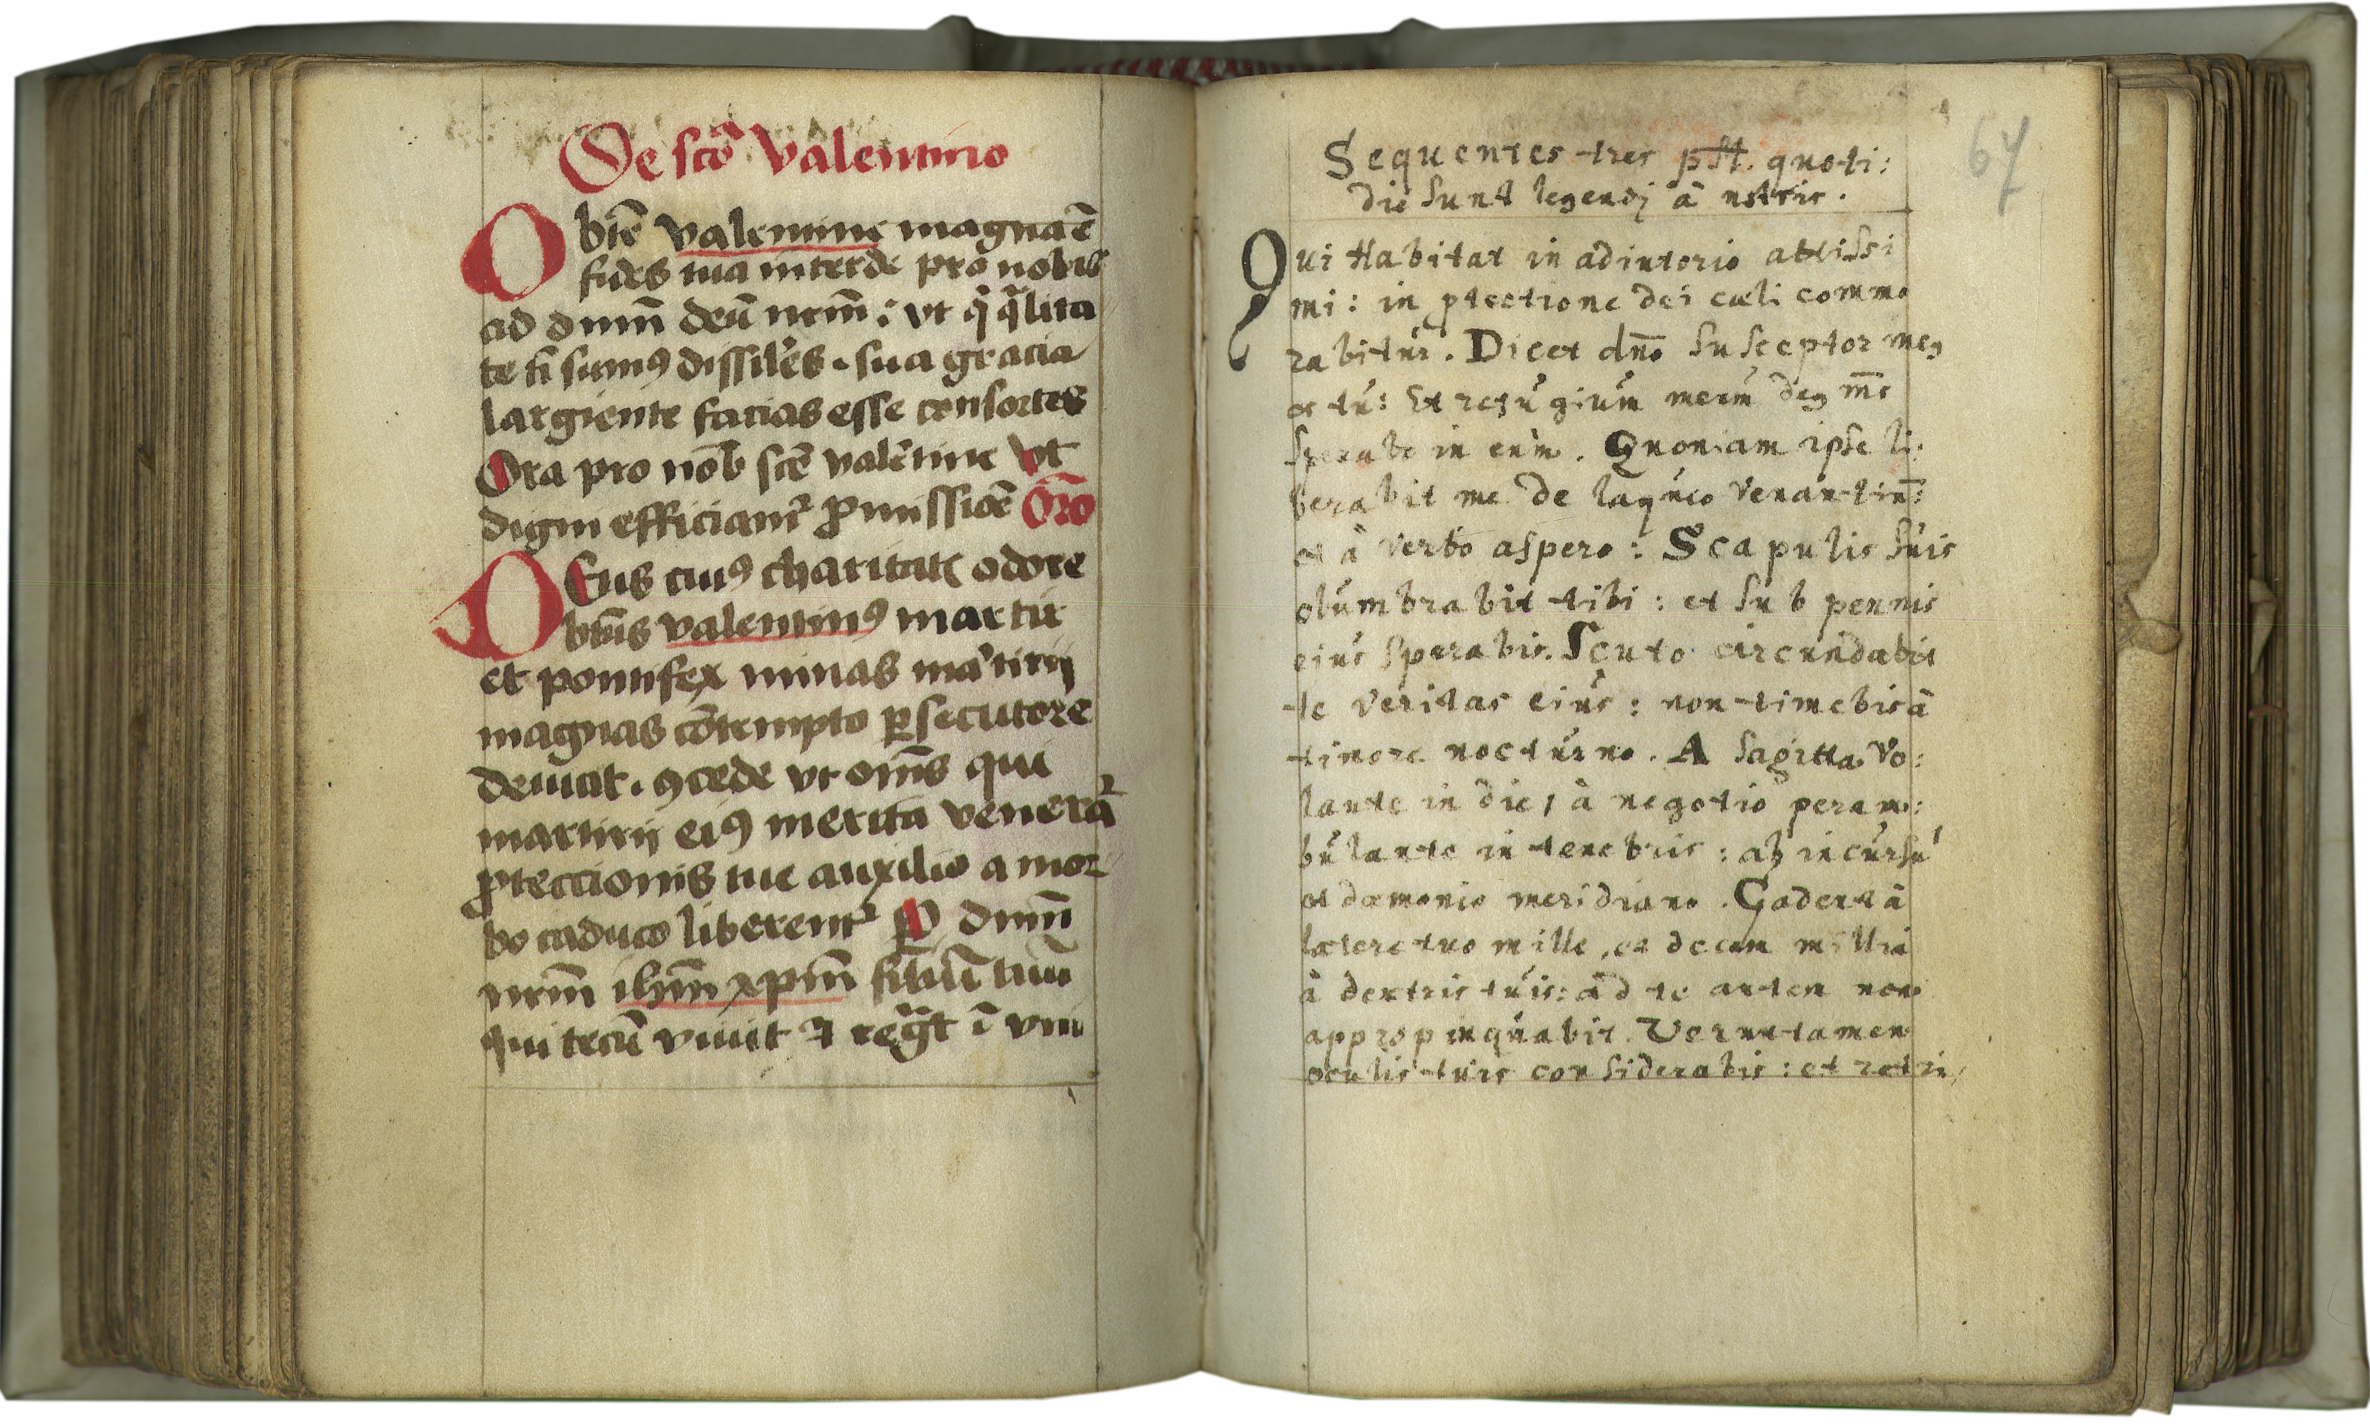 De scō Valentino
O btē valentine magna ē
fides tua intercde pro nobis
ad dnm̄ deū nrm̄: vt q̄ q̄lita
te ti sumꝰ dissiles. sua gracia
largiente facias esse consortes
Ora pro nob̄ scē valētine vt
digni efficiamr ꝓmissiōe Oro
Deus cuiꝰ charitatis odore
btūs valentinꝰ martir
et pontifex minas mārtirij
magnas cōtempto ꝑsecutore
deuicit. ꝯcede vt omēs qui
martirij eiꝰ merita venerā
ꝓteccionis tue auxilio a mor
bo caduco liberentr P dnm̄
nrm̄ ihm̄ xpm̄ filiū tuū
qui tecū viuit ⁊ regt ī vni
67
Sequentes tres psal. quoti:
die sunt legendj â nstris.
Qui Habitat in adiutorio altissi
mi: in ꝓtectione dei cæli commo
rabitur. Dicet dno susceptor meꝰ
es tu: Et refugium meum deꝰ ms
sperabo in eum. Quoniam ipse li:
berabit me de laqueo venantiū:
et â verbo aspero: Scapulis suis
obumbrabit tibi: et sub pennis
eius sperabis. Scuto circundabit
te veritas eius: non timebis â
timore nocturno. A sagitta vo:
lante in die, à negotio peram:
bulante in tenebris: ab incursu
et dæmonio meridiano. Cadent â
latere tuo mille, et decem millia
â dextris tuis: ad te autem non
appropinquabit. Veruntamen
oculis tuis considerabis: et retri,